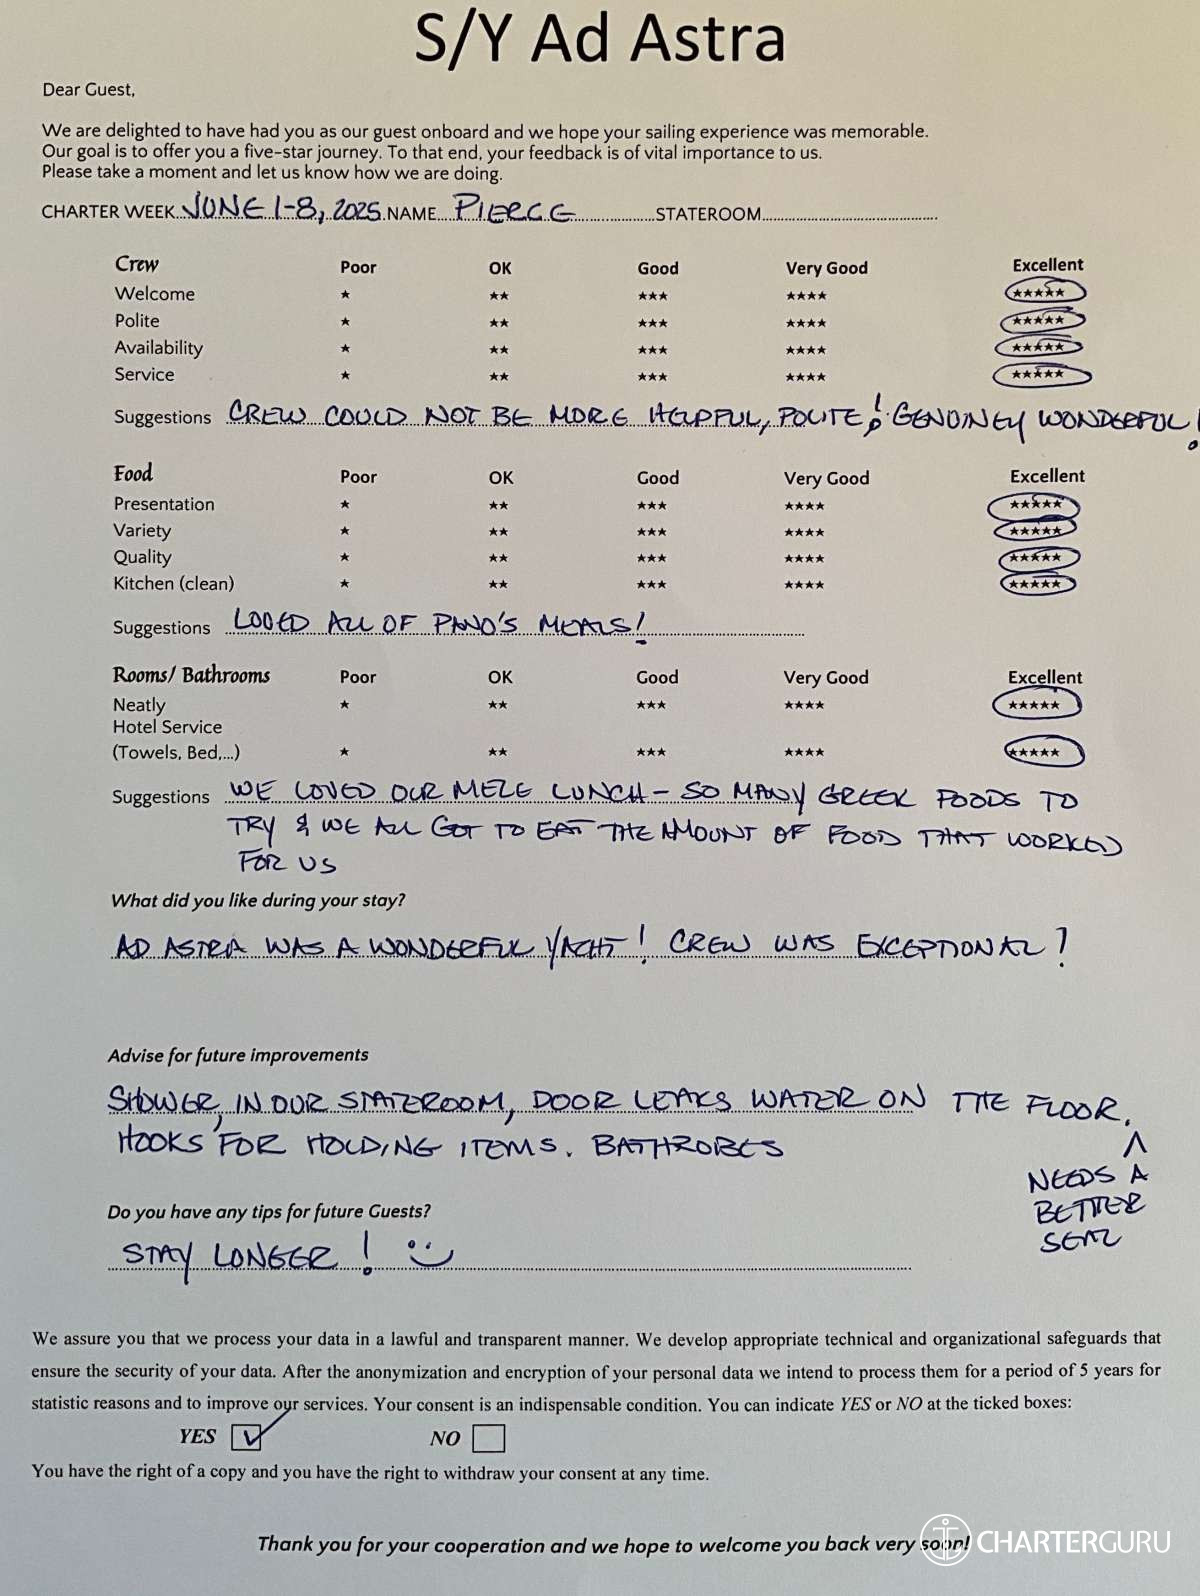 S/Y Ad Astra
Dear Guest,
We are delighted to have had you as our guest onboard and we hope your sailing experience was memorable.
Our goal is to offer you a five-star journey. To that end, your feedback is of vital importance to us.
Please take a moment and let us know how we are doing.
CHARTER WEEK JUNE 1-8, 2025 NAME PIERCE STATEROOM
Crew Poor OK Good Very Good Excellent
Welcome ★ ★★ ★★★ ★★★★ ★★★★★
Polite ★ ★★ ★★★ ★★★★ ★★★★★
Availability ★ ★★ ★★★ ★★★★ ★★★★★
Service ★ ★★ ★★★ ★★★★ ★★★★★
Suggestions CREW COULD NOT BE MORE HELPFUL, POLITE & GENUINEY WONDERFUL!
Food Poor OK Good Very Good Excellent
Presentation ★ ★★ ★★★ ★★★★ ★★★★★
Variety ★ ★★ ★★★ ★★★★ ★★★★★
Quality ★ ★★ ★★★ ★★★★ ★★★★★
Kitchen (clean) ★ ★★ ★★★ ★★★★ ★★★★★
Suggestions LOVED ALL OF PANO'S MEALS!
Rooms/ Bathrooms Poor OK Good Very Good Excellent
Neatly ★ ★★ ★★★ ★★★★ ★★★★★
Hotel Service
(Towels, Bed,...) ★ ★★ ★★★ ★★★★ ★★★★★
Suggestions WE LOVED OUR MEZE LUNCH - SO MANY GREEK FOODS TO
TRY & WE ALL GOT TO EAT THE AMOUNT OF FOOD THAT WORKED
FOR US
What did you like during your stay?
AD ASTRA WAS A WONDERFUL YACHT! CREW WAS EXCEPTIONAL!
Advise for future improvements
SHOWER, IN OUR STATEROOM, DOOR LEAKS WATER ON THE FLOOR.
HOOKS FOR HOLDING ITEMS. BATHROBES
NEEDS A
BETTER
SEAL
Do you have any tips for future Guests?
STAY LONGER! :)
We assure you that we process your data in a lawful and transparent manner. We develop appropriate technical and organizational safeguards that
ensure the security of your data. After the anonymization and encryption of your personal data we intend to process them for a period of 5 years for
statistic reasons and to improve our services. Your consent is an indispensable condition. You can indicate YES or NO at the ticked boxes:
YES ☑ NO ☐
You have the right of a copy and you have the right to withdraw your consent at any time.
Thank you for your cooperation and we hope to welcome you back very soon!
CHARTERGURU